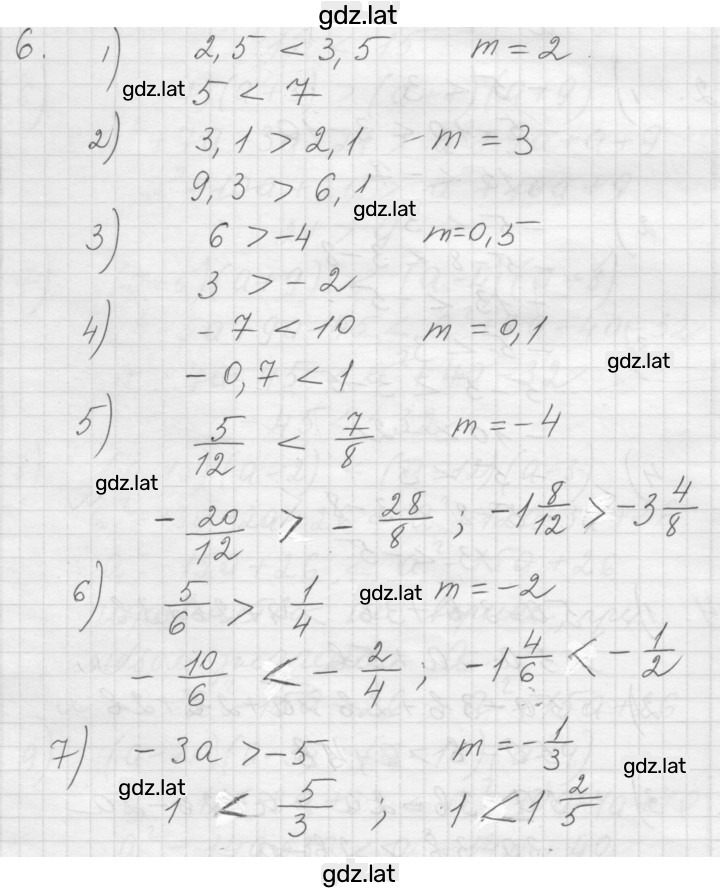 gdz.lat
6. 1) 2,5 < 3,5 m = 2
gdz.lat
5 < 7
2) 3,1 > 2,1 - m = 3
9,3 > 6,1
gdz.lat
3) 6 > -4 m=0,5
3 > -2
4) -7 < 10 m = 0,1
gdz.lat
-0,7 < 1
5) 5/12 < 7/8 m = -4
gdz.lat
-20/12 > -28/8 ; -1 8/12 > -3 4/8
6) 5/6 > 1/4 gdz.lat m = -2
-10/6 < -2/4 ; -1 4/6 < -1/2
7) -3a > -5 m = -1/3
gdz.lat
gdz.lat
1 < 5/3 ; 1 < 1 2/5
gdz.lat